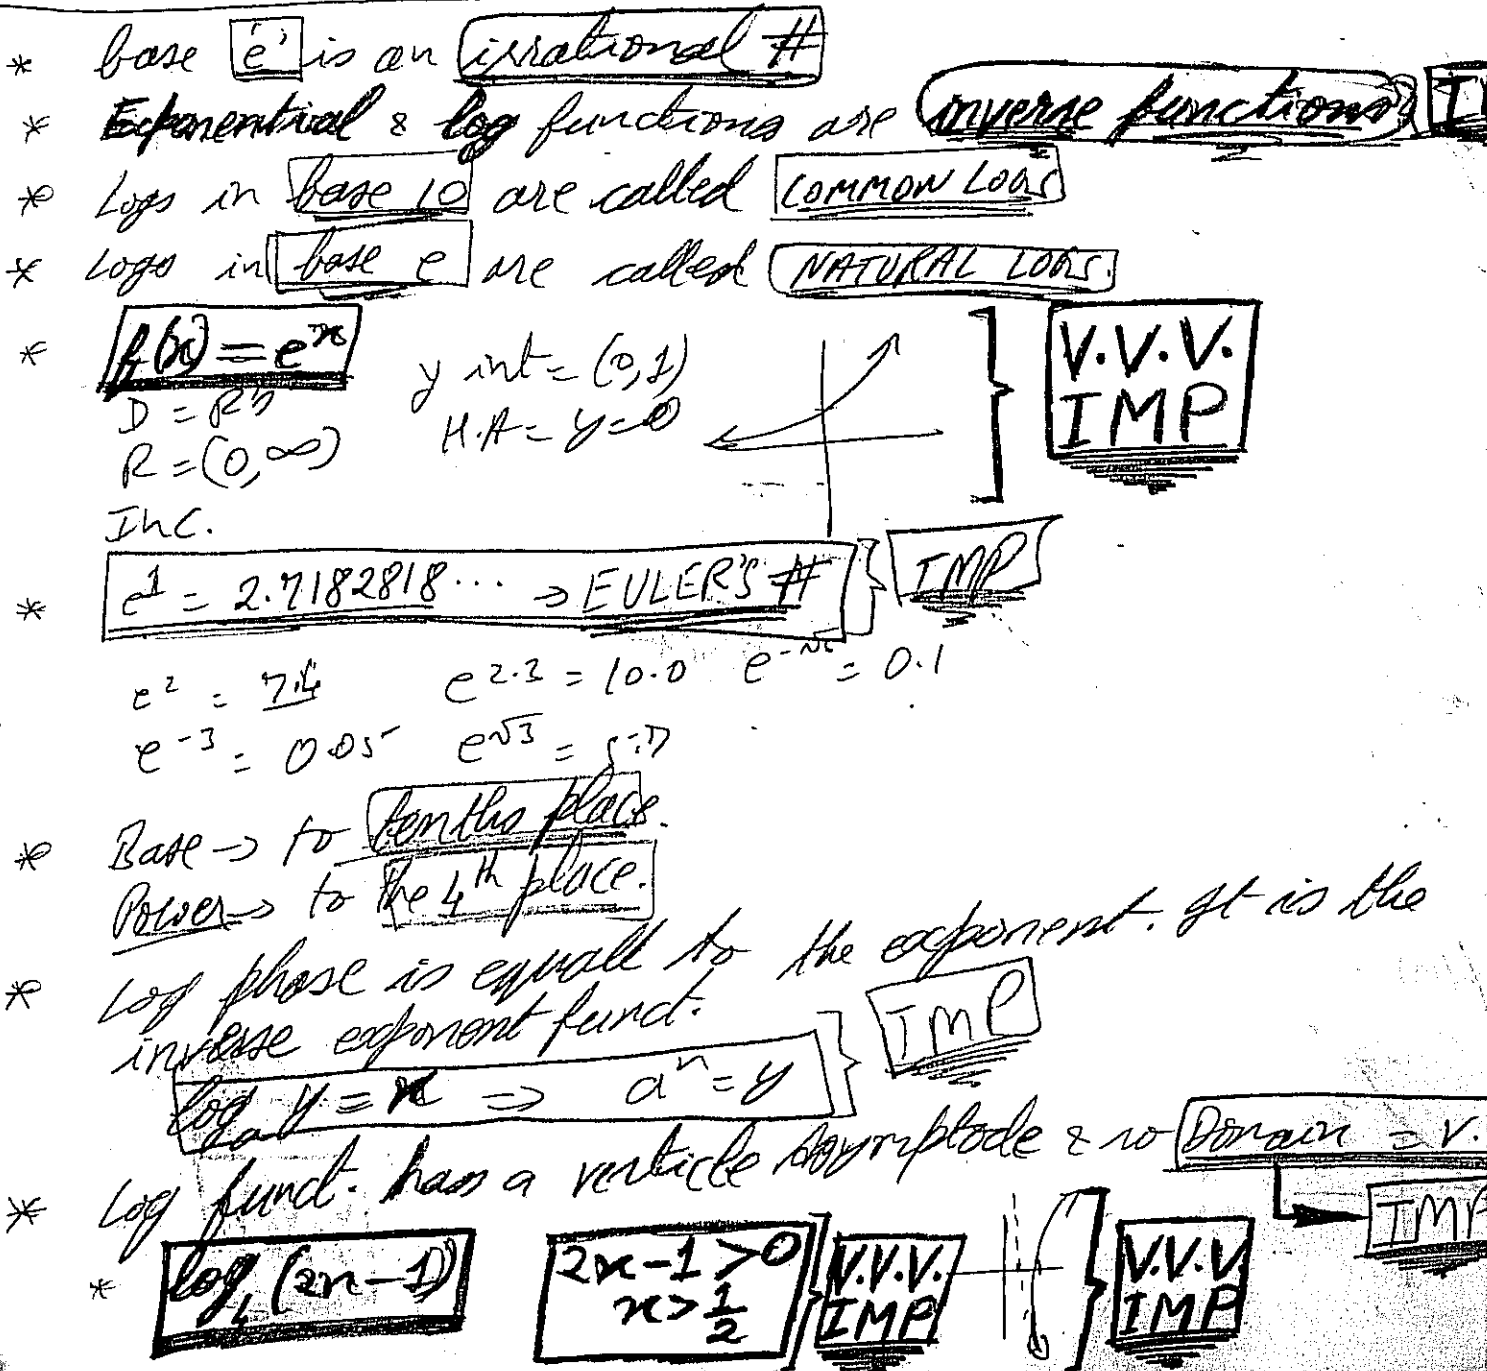 * base 'e' is an irrational #
* Exponential & log functions are inverse functions
* Logs in base 10 are called COMMON LOGS
* Logs in base e are called NATURAL LOGS.
* f(x) = e^x y int = (0,1) V.V.V. IMP
D = R's H.A = y=0
R = (0,∞)
Inc.
* e^1 = 2.7182818... → EULER'S # } IMP
e^2 = 7.4 e^2.3 = 10.0 = 0.1
e^-3 = 0.05 e^√3 =
* Base → to tenths place.
Power → to the 4th place.
* Log phase is equall to the exponent. It is the
inverse exponent funct.
log_a y = x ⇒ a^x = y } IMP
* Log funct. has a verticle Asymplode & so Domain = V.
IMP
* log_4 (2x-1) 2x-1>0 V.V.V. IMP V.V.V IMP
x > 1/2